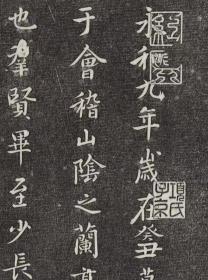 永和九年歲在癸丑
于會稽山陰之蘭
也羣賢畢至少長
項氏子京